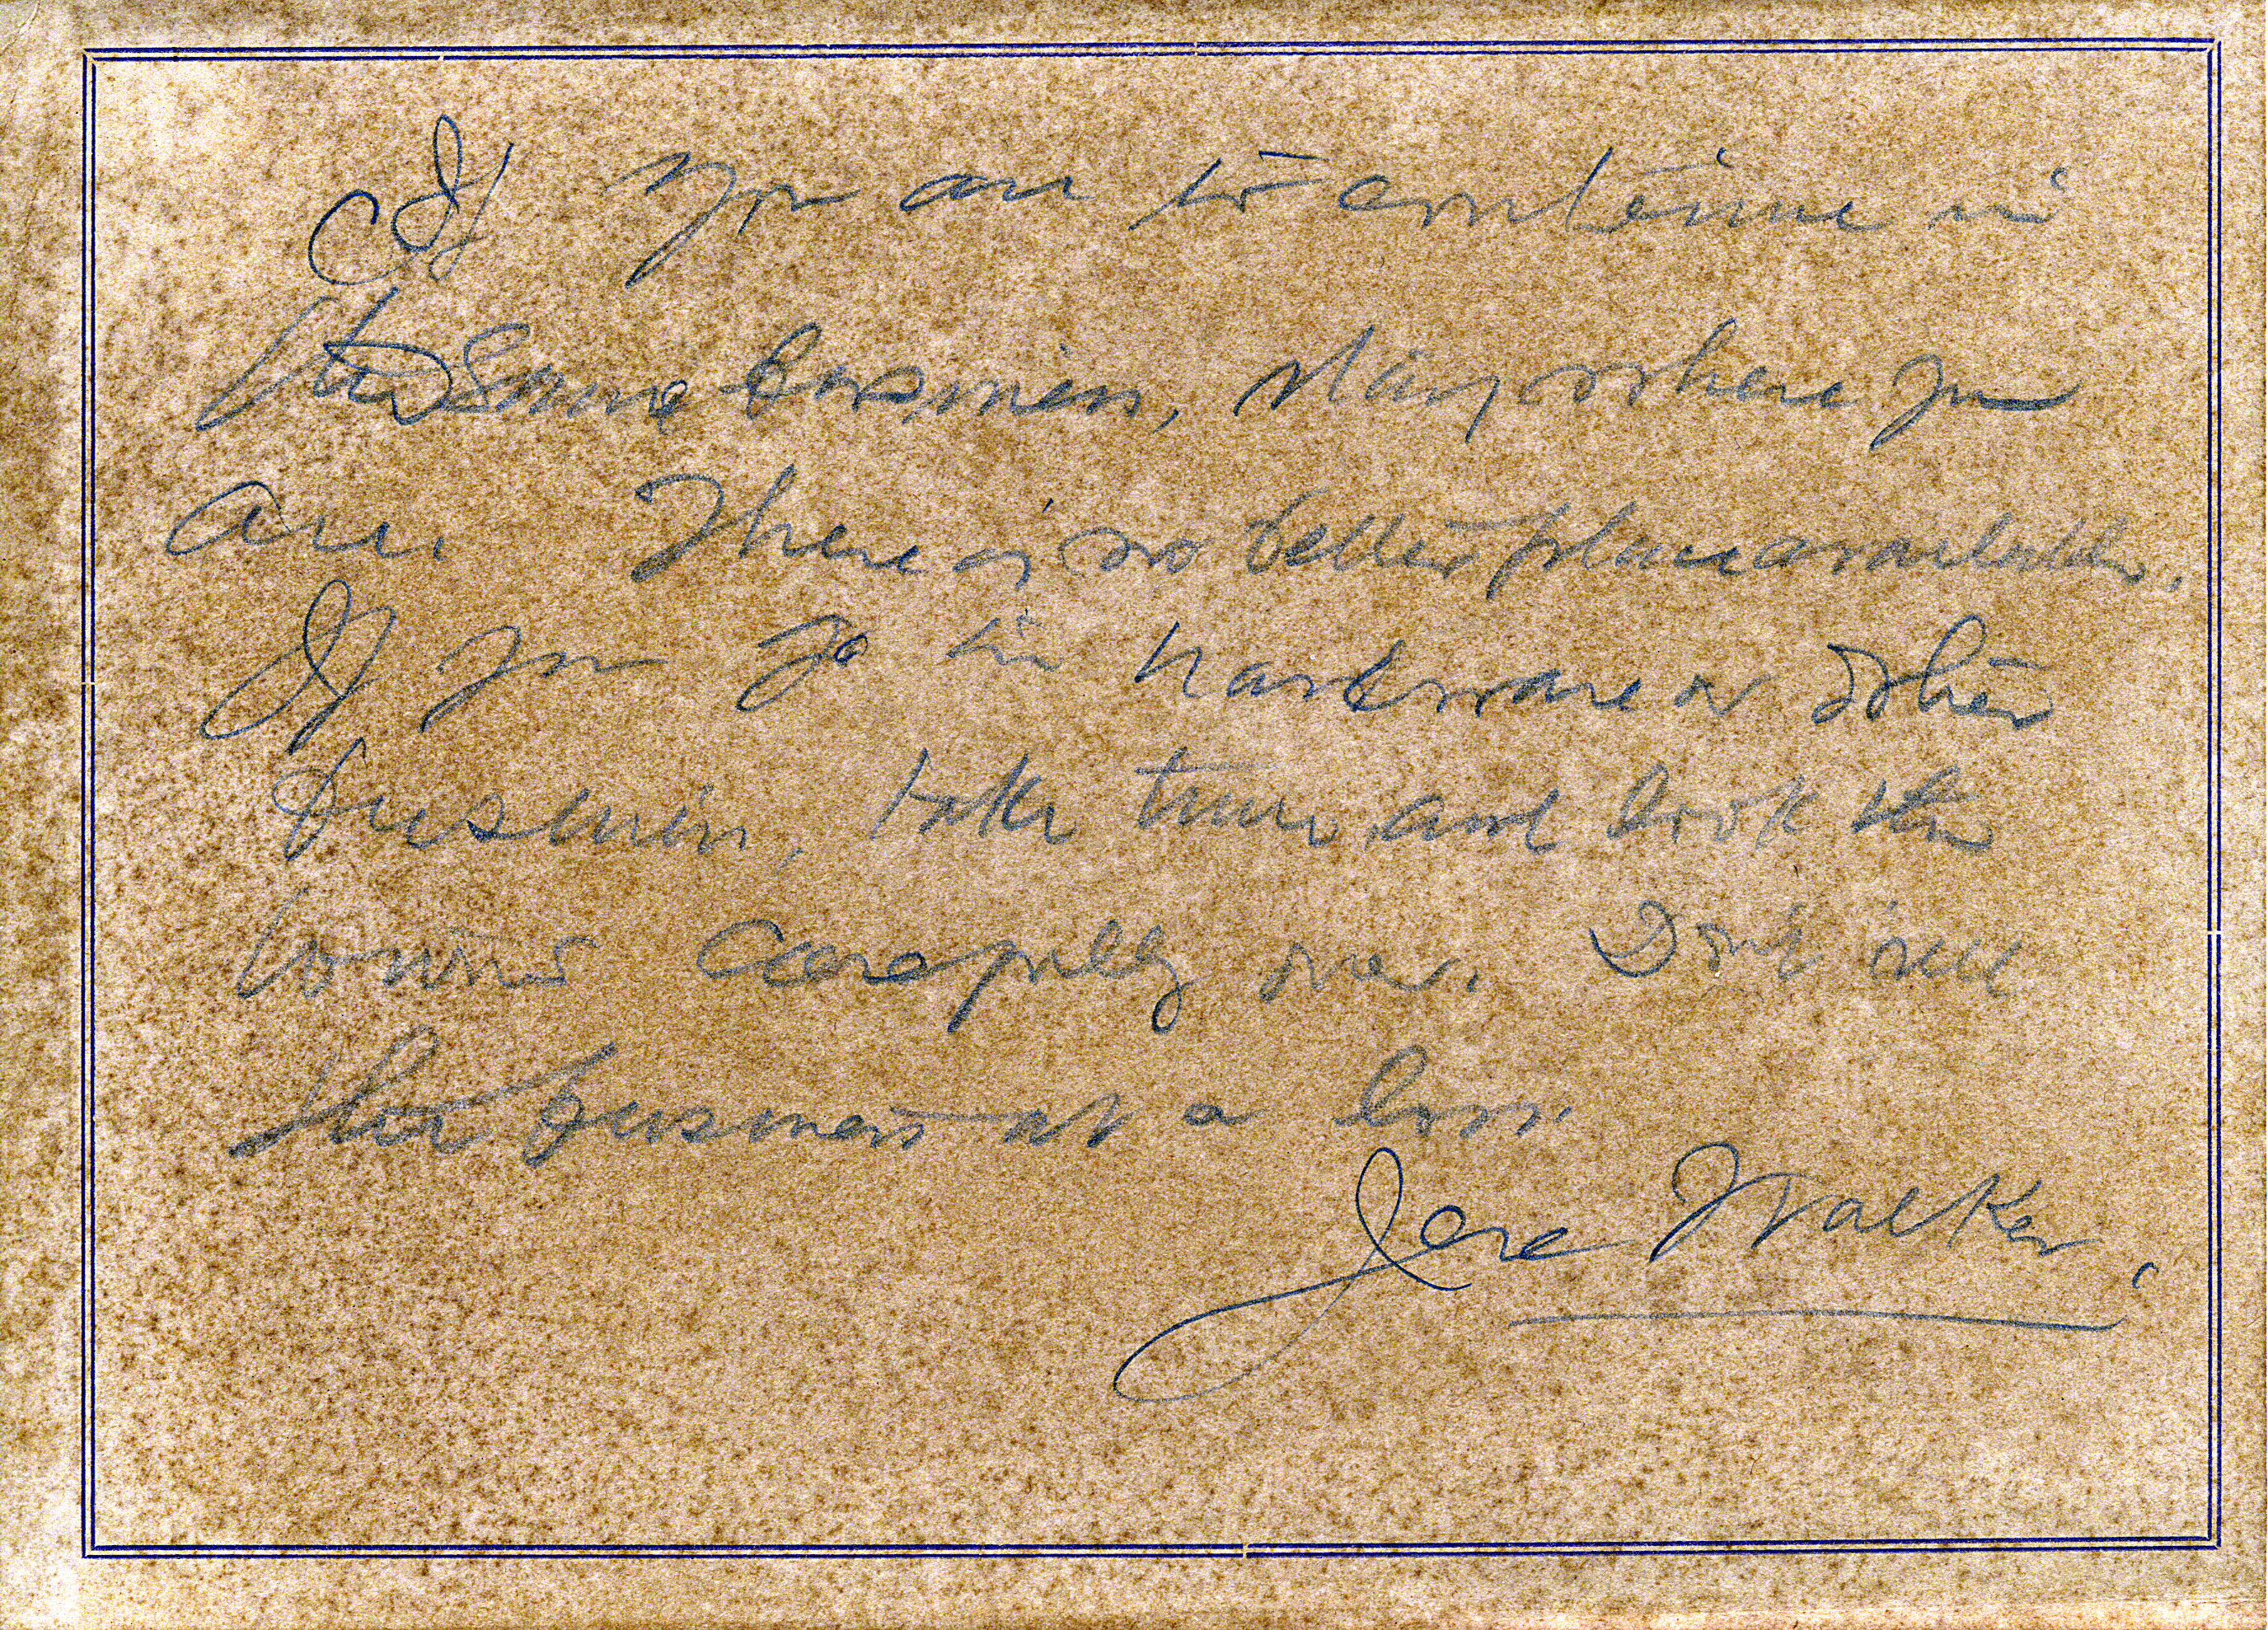 If you are to continue in
the same business, stay where you
are. There is no better place available.
If you go in hardware or other
business, take time and look the
towns carefully over. Don't sell
the business at a loss.
Jere Walker.